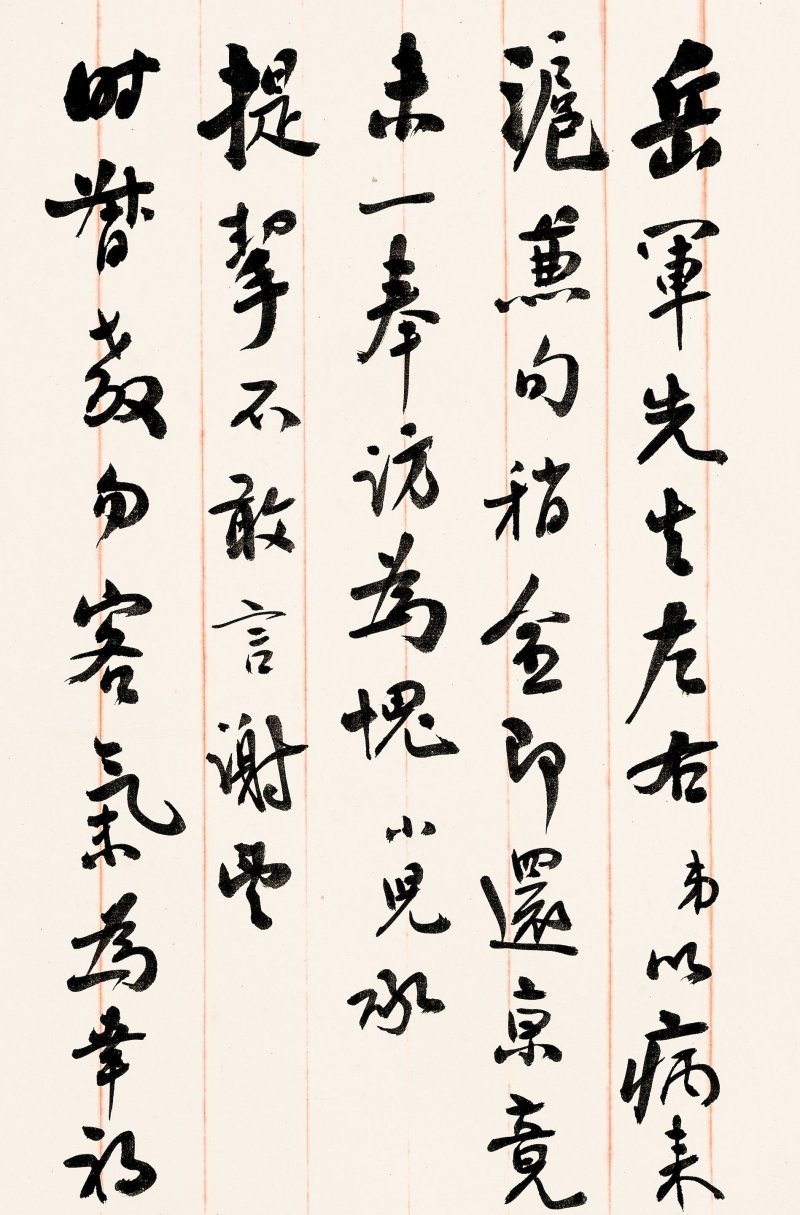 岳軍先生左右弟以病來
滬兼旬稍愈即還京竟
未一奉訪為愧小兒承
提挈不敢言謝望
时督教勿客氣為幸